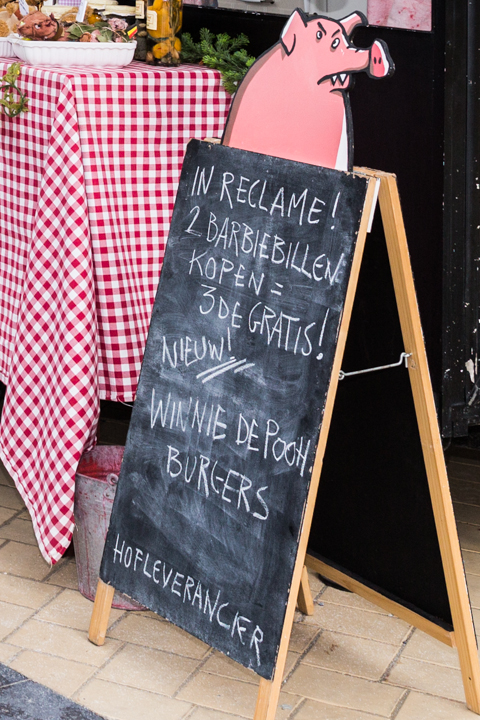 IN RECLAME!
2 BARBIEBILLEN
KOPEN =
3DE GRATIS!
NIEUW!
WINNIE DE POOH.
BURGERS
HOFLEVERANCIER